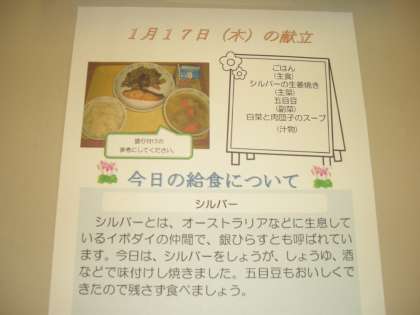 1月17日（木）の献立
ごはん
（主食）
シルバーの生姜焼き
（主菜）
五目豆
（副菜）
白菜と肉団子のスープ
（汁物）
盛り付けの
参考にしてください。
今日の給食について
シルバー
シルバーとは、オーストラリアなどに生息して
いるイボダイの仲間で、銀ひらすとも呼ばれてい
ます。今日は、シルバーをしょうが、しょうゆ、酒
などで味付けし焼きました。五目豆もおいしくで
きたので残さず食べましょう。